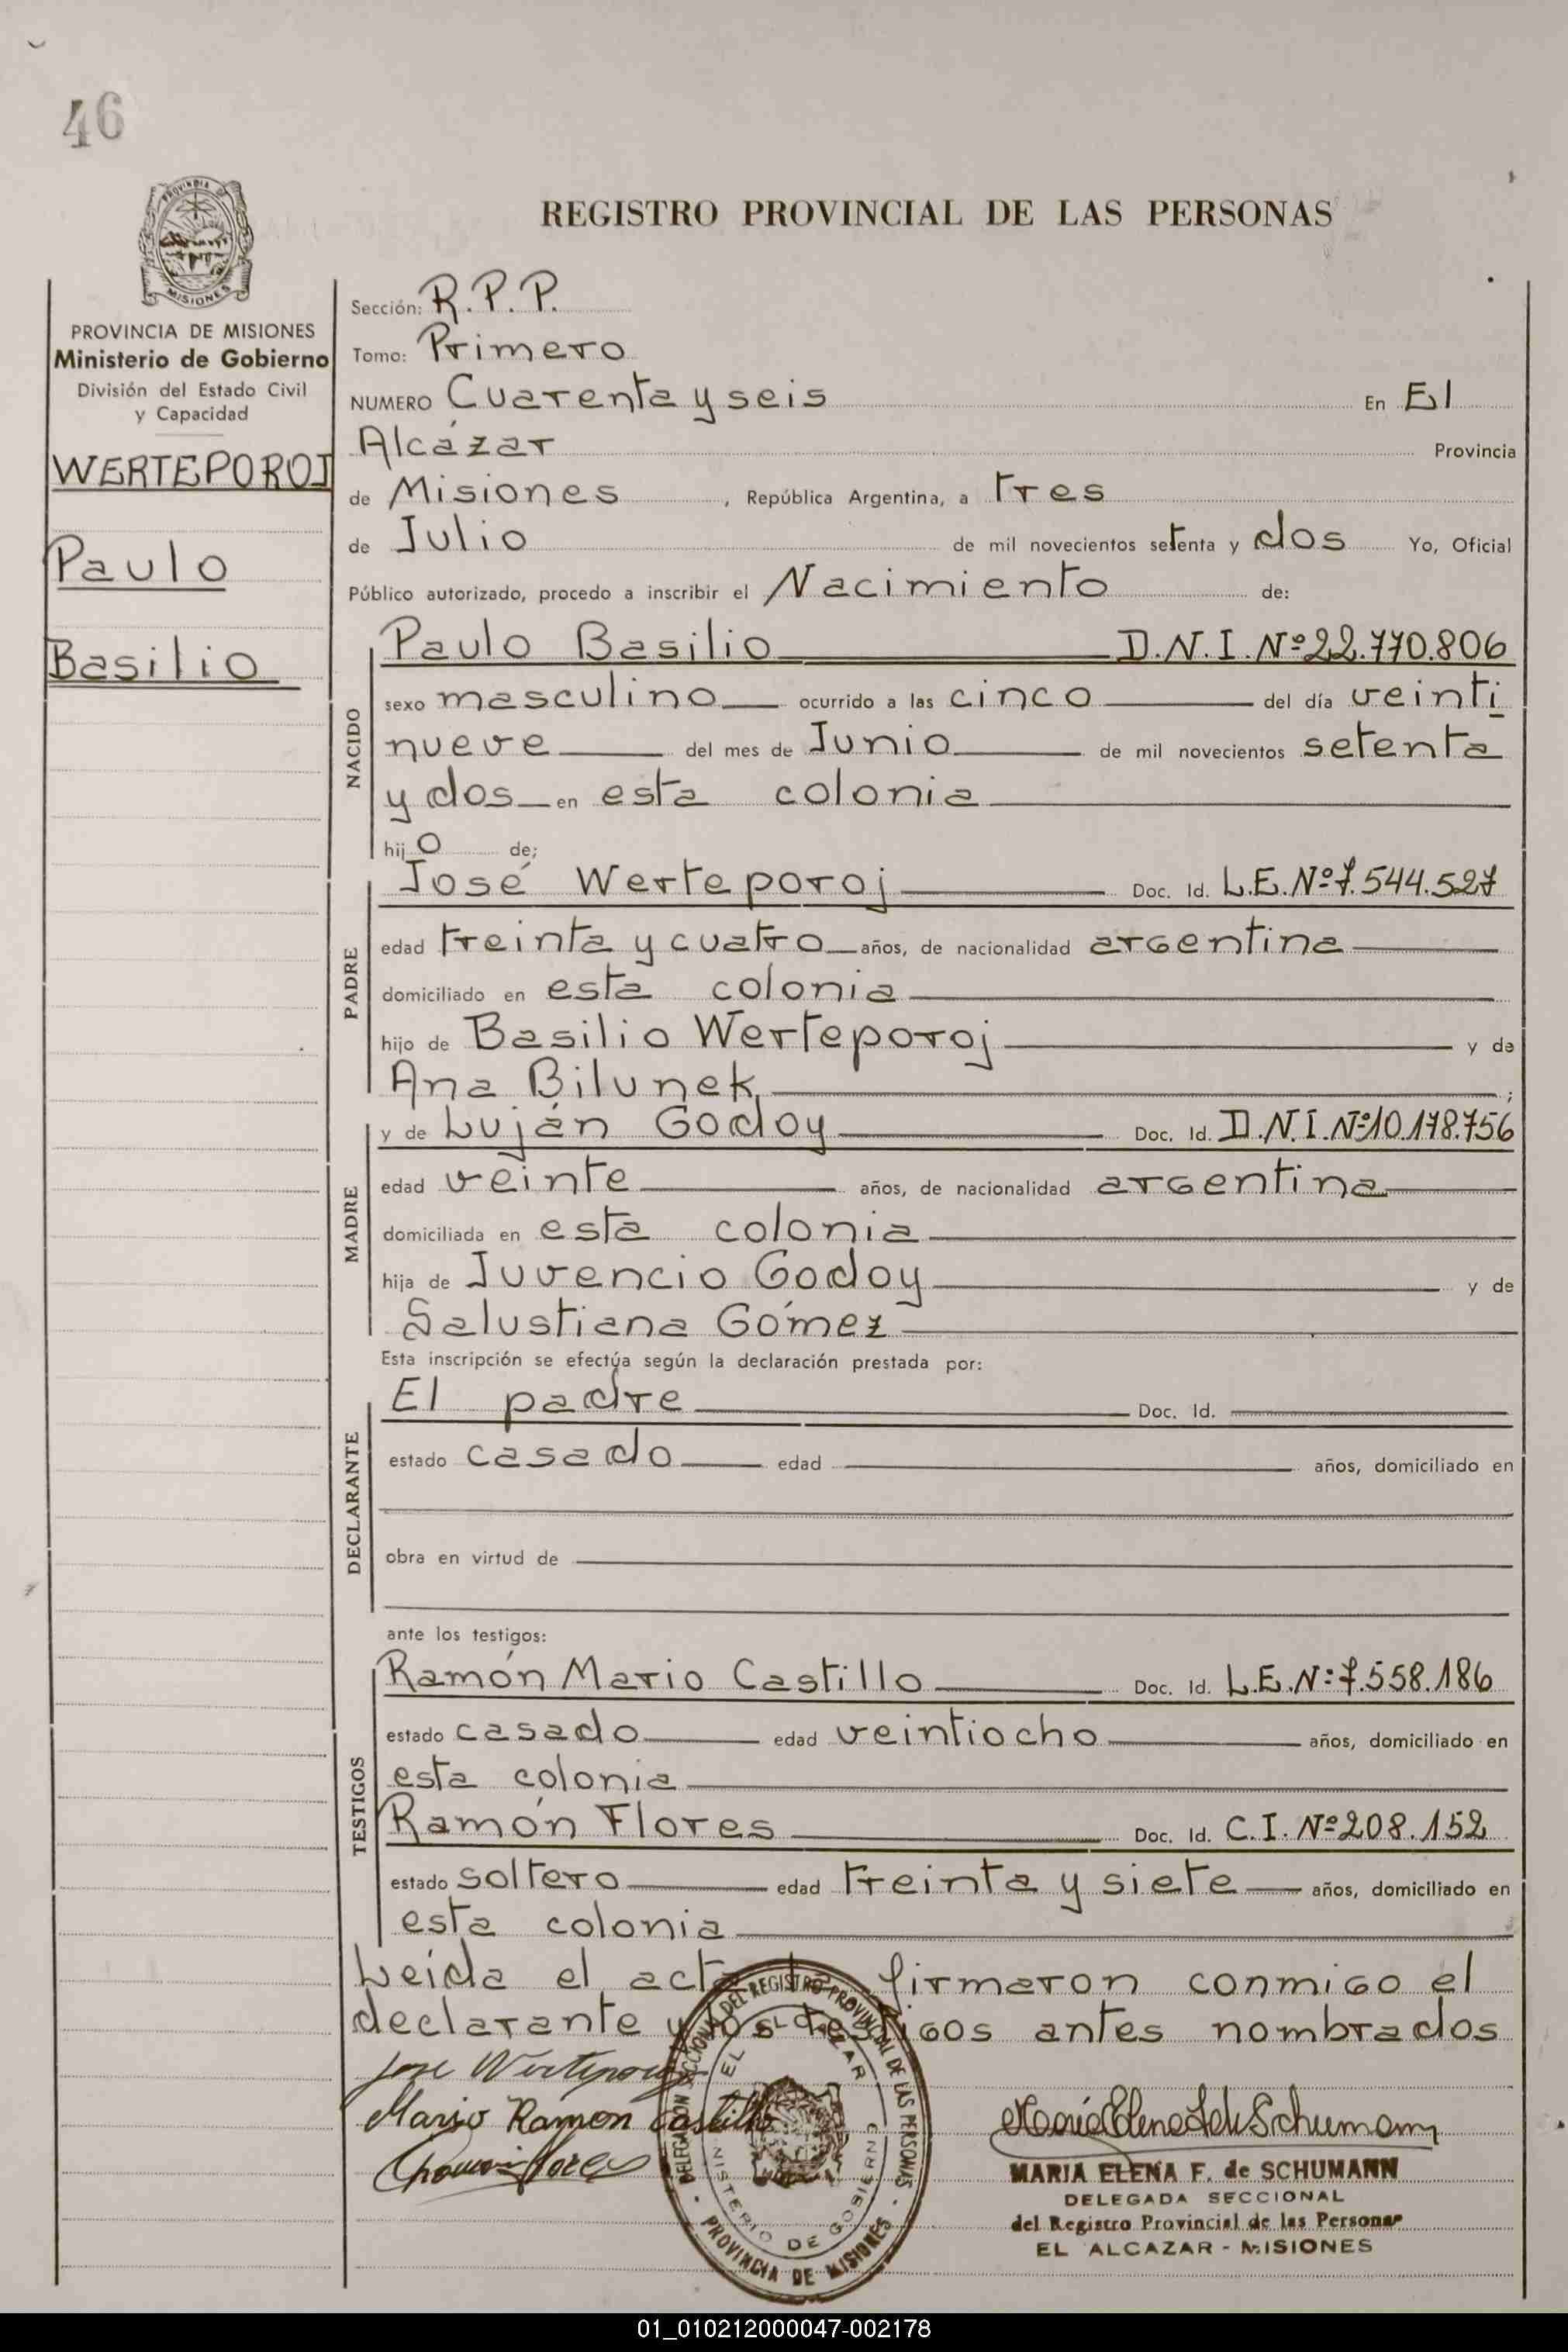 46
REGISTRO PROVINCIAL DE LAS PERSONAS
PROVINCIA DE
MISIONES
PROVINCIA DE MISIONES
Ministerio de Gobierno
División del Estado Civil
y Capacidad
WERTEPOROJ
Paulo
Basilio
Sección: R.P.P.
Tomo: Primero
NUMERO Cuarenta y seis En El
Alcázar Provincia
de Misiones, República Argentina, a tres
de Julio de mil novecientos setenta y dos Yo, Oficial
Público autorizado, procedo a inscribir el Nacimiento de:
NACIDO
Paulo Basilio D.N.I. Nº 22.770.806
sexo masculino ocurrido a las cinco del día veinti
nueve del mes de Junio de mil novecientos setenta
y dos en esta colonia
hijo de;
PADRE
José Werteporoj Doc. Id. L.E. Nº 7.544.527
edad treinta y cuatro años, de nacionalidad argentina
domiciliado en esta colonia
hijo de Basilio Werteporoj y de
Ana Bilunek ;
MADRE
y de Luján Godoy Doc. Id. D.N.I. Nº 10.178.756
edad veinte años, de nacionalidad argentina
domiciliada en esta colonia
hija de Juvencio Godoy y de
Salustiana Gómez
Esta inscripción se efectúa según la declaración prestada por:
DECLARANTE
El padre Doc. Id.
estado casado edad años, domiciliado en
obra en virtud de
ante los testigos:
TESTIGOS
Ramón Mario Castillo Doc. Id. L.E. Nº 7.558.186
estado casado edad veintiocho años, domiciliado en
esta colonia
Ramón Flores Doc. Id. C.I. Nº 208.152
estado soltero edad treinta y siete años, domiciliado en
esta colonia
Leída el acta la firmaron conmigo el
declarante y los testigos antes nombrados
Jose Werteporoj
Mario Ramon Castillo
Ramon Flores
DELEGACION SECCIONAL DEL REGISTRO PROVINCIAL DE LAS PERSONAS
EL ALCAZAR
MINISTERIO DE GOBIERNO
PROVINCIA DE MISIONES
Maria Elena F. de Schumann
MARIA ELENA F. de SCHUMANN
DELEGADA SECCIONAL
del Registro Provincial de las Personas
EL ALCAZAR - MISIONES
01_010212000047-002178